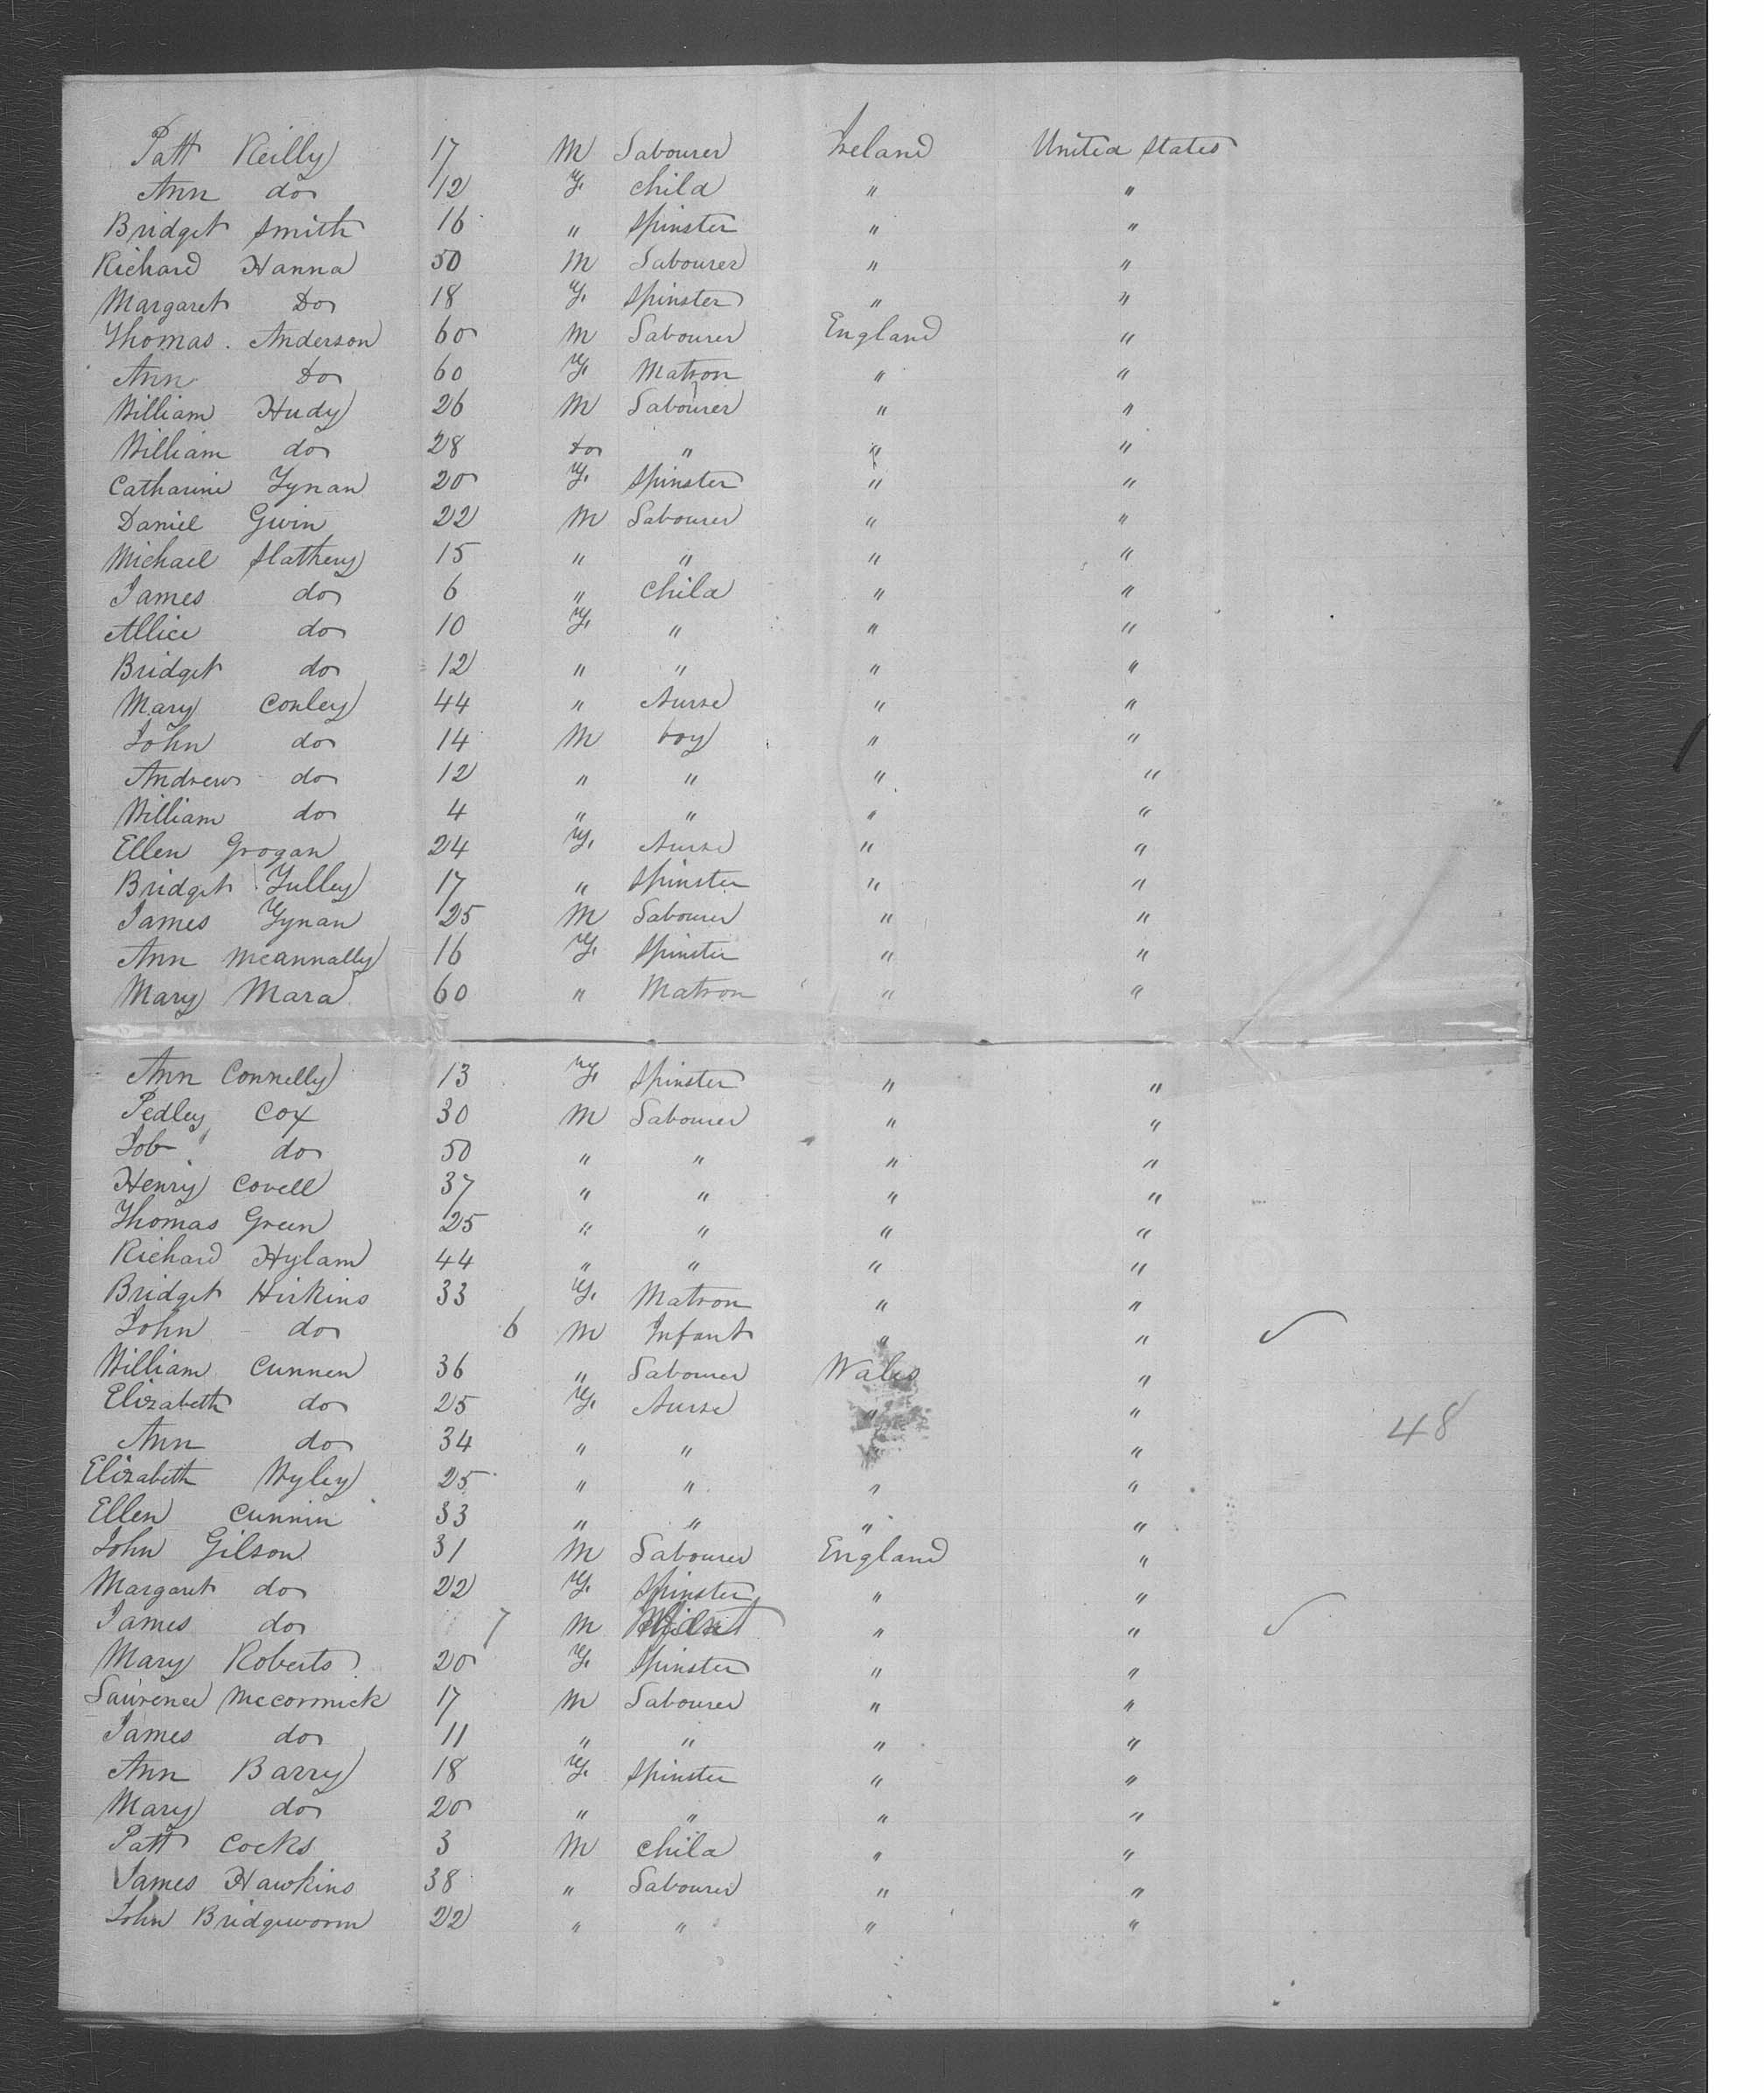 Patt Reilly 17 M Labourer Ireland United States
Ann do 12 F. child " "
Bridget Smith 16 " Spinster " "
Richard Hanna 50 M Labourer " "
Margaret Do 18 F. Spinster " "
Thomas. Anderson 60 M Labourer England "
Ann Do 60 F. Matron " "
William Hudy 26 M Labourer " "
William do 28 do " " "
Catharine Fynan 20 F. Spinster " "
Daniel Gwin 22 M Labourer " "
Michael Slathery 15 " " " "
James do 6 " child " "
Allice do 10 F. " " "
Bridget do 12 " " " "
Mary Conley 44 " Nurse " "
John do 14 M boy " "
Andrew do 12 " " " "
William do 4 " " " "
Ellen Grogan 24 F. Nurse " "
Bridget Fulley 17 " Spinster " "
James Fynan 25 M Labourer " "
Ann McAnnally 16 F. Spinster " "
Mary Mara 60 " Matron " "
Ann Connelly 13 F. Spinster " "
Pedley Cox 30 M Labourer " "
Job do 50 " " " "
Henry Covell 37 " " " "
Thomas Green 25 " " " "
Richard Hylam 44 " " " "
Bridget Hirkins 33 F. Matron " "
John do 6 M Infant " "
William Cunnen 36 " Labourer Wales "
Elizabeth do 25 F. Nurse " "
48
Ann do 34 " " " "
Elizabeth Wyley 25 " " " "
Ellen Cunnin 33 " " " "
John Gilson 31 M Labourer England "
Margaret do 22 F. Spinster " "
James do 7 M " "
Mary Roberts 20 F. Spinster " "
Laurence McCormick 17 M Labourer " "
James do 11 " " " "
Ann Barry 18 F. Spinster " "
Mary do 20 " " " "
Patt Cocks 3 M child " "
James Hawkins 38 " Labourer " "
John Bridgeworm 22 " " " "